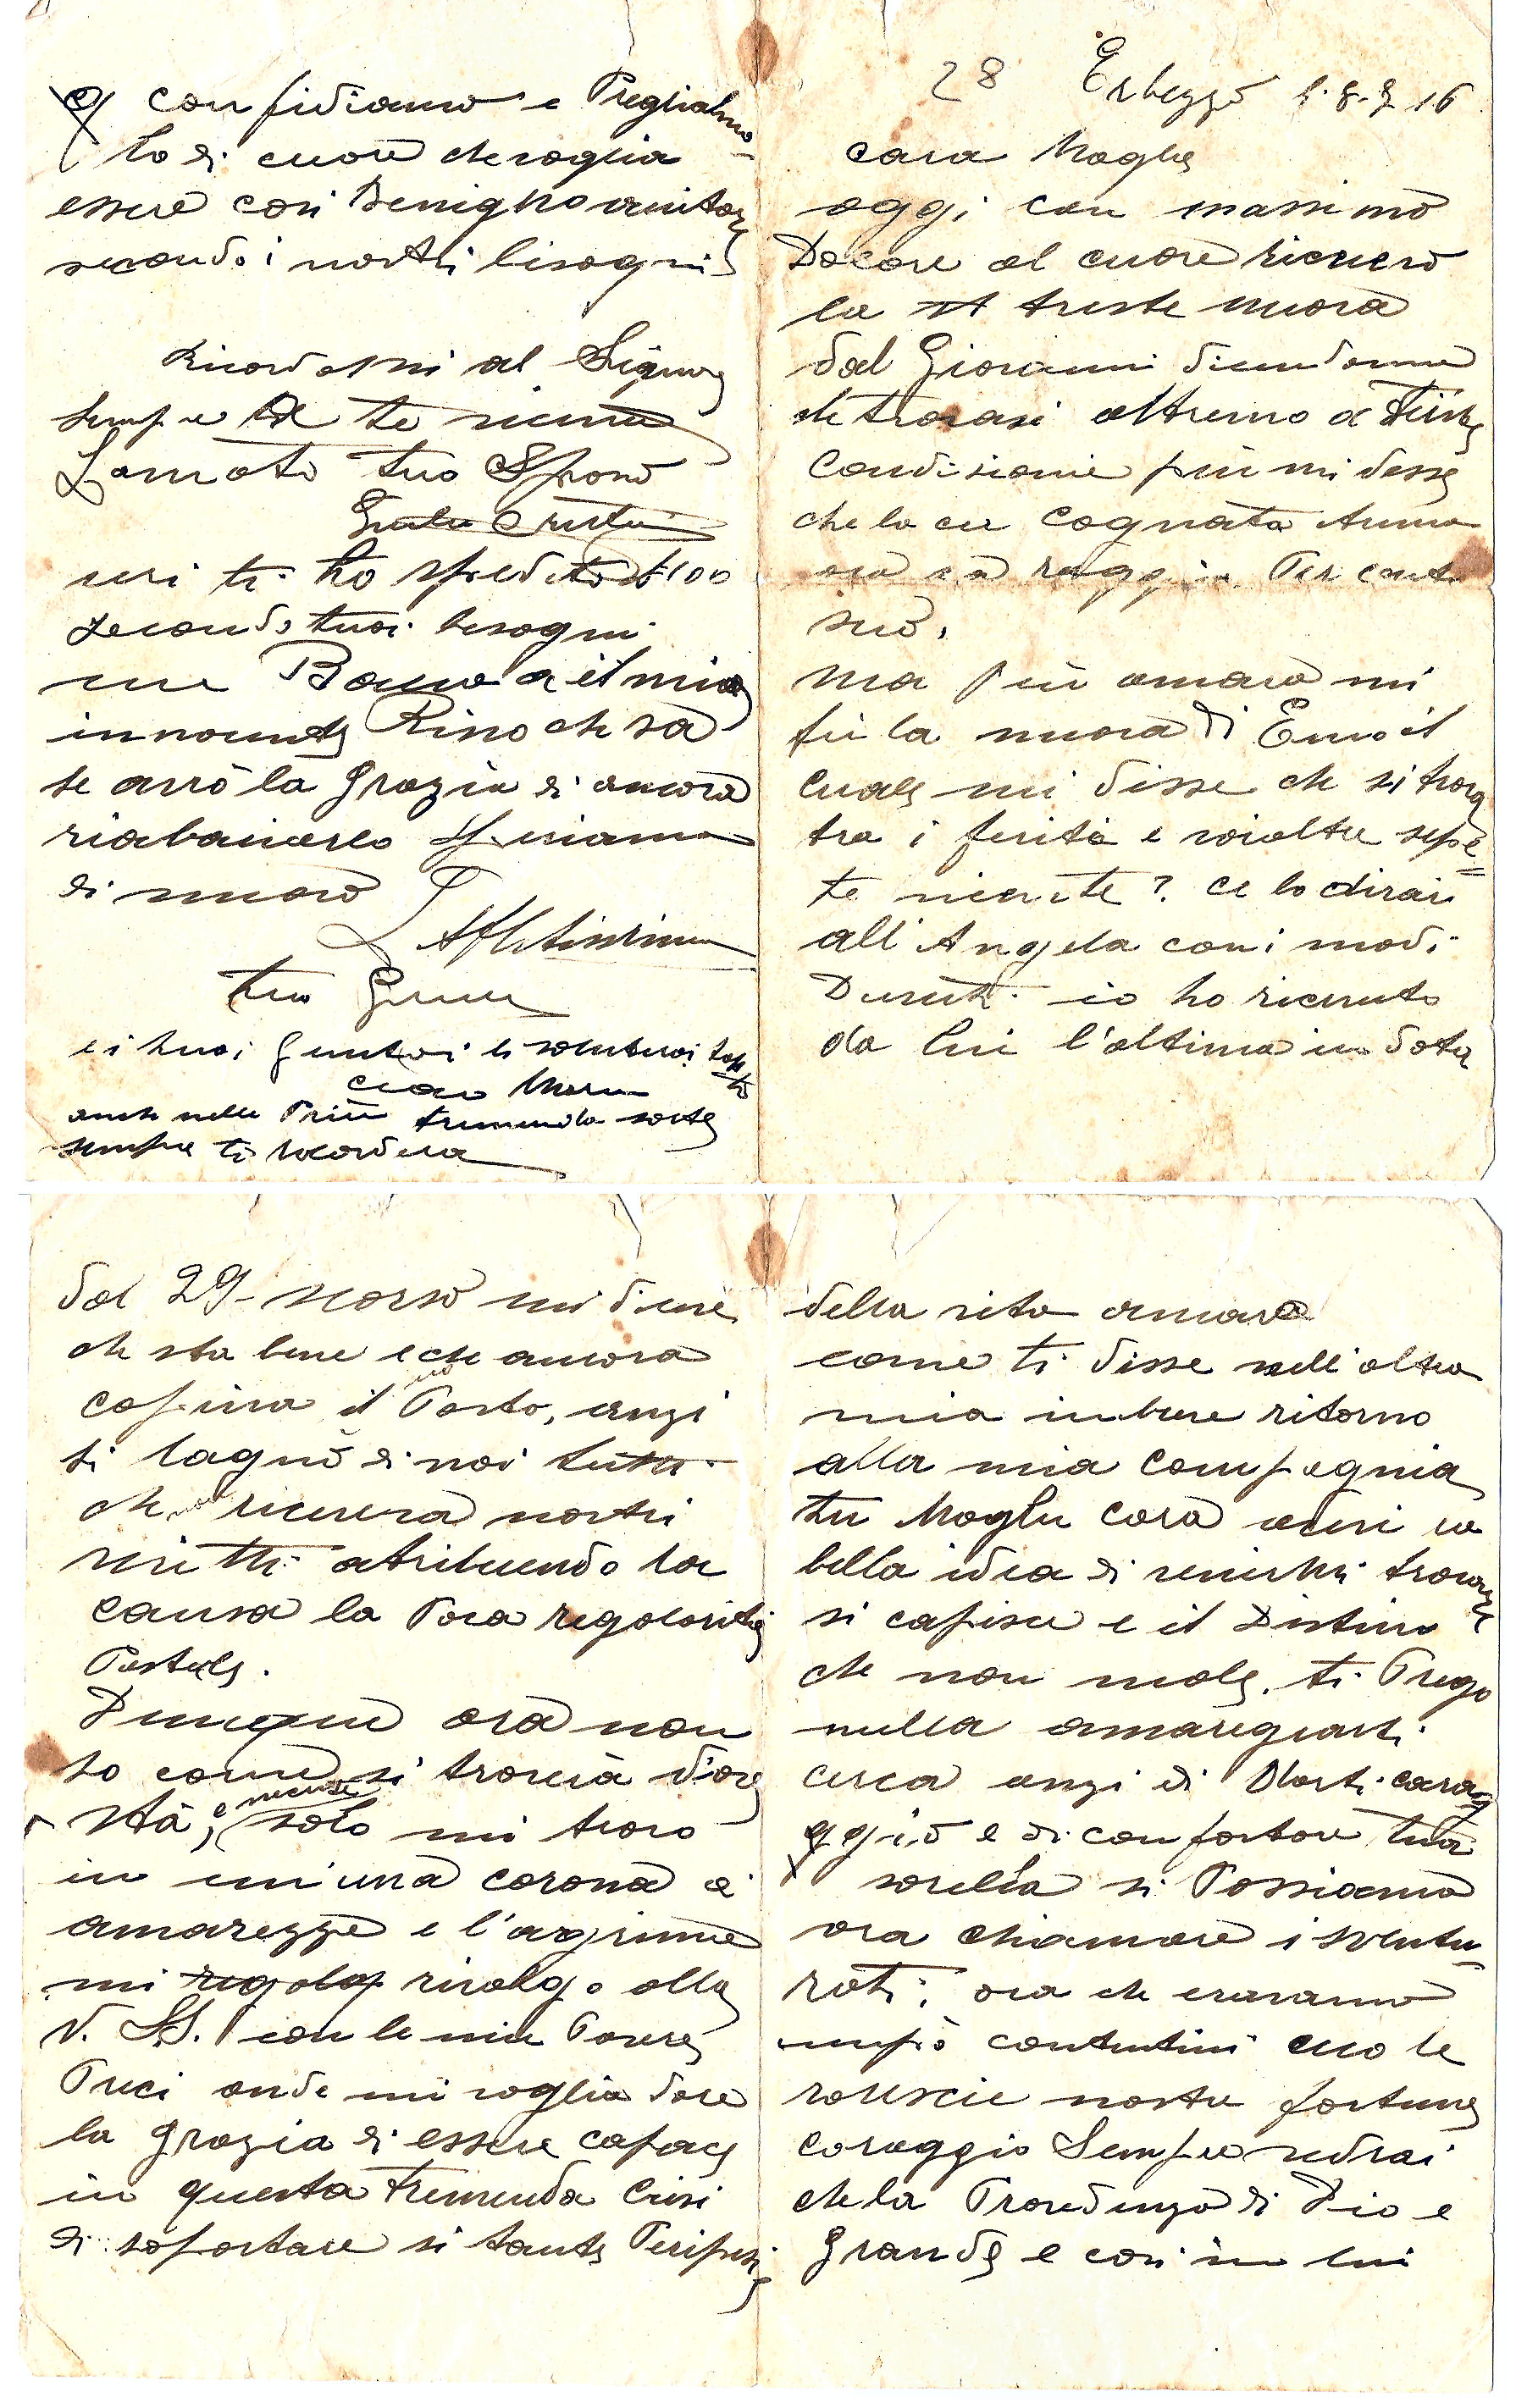 28 Erbezzo 16
cara Moglie
oggi con massimo
Dolore al cuore ricevero
la triste nuova
dal Giovanni dicendomi
che trovasi alterno a triste
condisione più mi desse
che la cognata Anna
ora Per conto
suo.
Ma più amara mi
fu la nuova di Enio il
cuale mi disse che si trova
tra i feriti e voialtri sape=
te niente? ce lo dirai
all'Angela con i modi
Dunuti io ho ricevuto
da lui l'ultima in data
dal 29 scorso mi dice
che sta bene e che ancora
copriva il suo Posto, anzi
si lagnò di noi tutti
che non riceveva nostri
scritti atribuendo la
causa la Poca regolarità
Postale.
Dunque ora non
so come si troverà d'ove
stà, e niente solo mi trovo
in una corona di
amarezze e l'agrime
mi regolg rivolgo alla
V. SS. con le mie Povere
Preci onde mi voglia dare
la grazia di essere capace
in questa tremenda Crisi
di soportare si tante Peripesie
della vita amara
come ti disse nell'altra
mia in breve ritorno
alla mia compagnia
tu Moglie cara avevi la
bella idea di venirmi trovare
si capisce e il Distino
che non vuole. ti Prego
nulla amaregiarti
cerca anzi di Darti cora
ggio e di confortare tua
sorella si Possiamo
ora chiamare i sventu-
rati; ora che eravamo
unpò contentini ecco le
rovescie nostre fortune
coraggio Sempre vedrai
che la Provedenza di Dio e
grande e cosi in lui
confidiamo e Preghiamo-
lo di cuore che voglia
essere con Benigno aiutare
secondo i nostri bisogni
Ricordarmi al Signore
sempre
L'amato tuo Sposo
ieri ti ho spedito £ 100
secondo tuoi besogni
un Bacio a il mio
innocente Rino chi sà
se avrò la grazia di ancora
riabaciarlo speriamo
di nuovo
Affetissimo
tuo
e i tuoi Genitori li saluterai
ciao
anche nelle Più tremenda sorte
sempre ti ricorderà